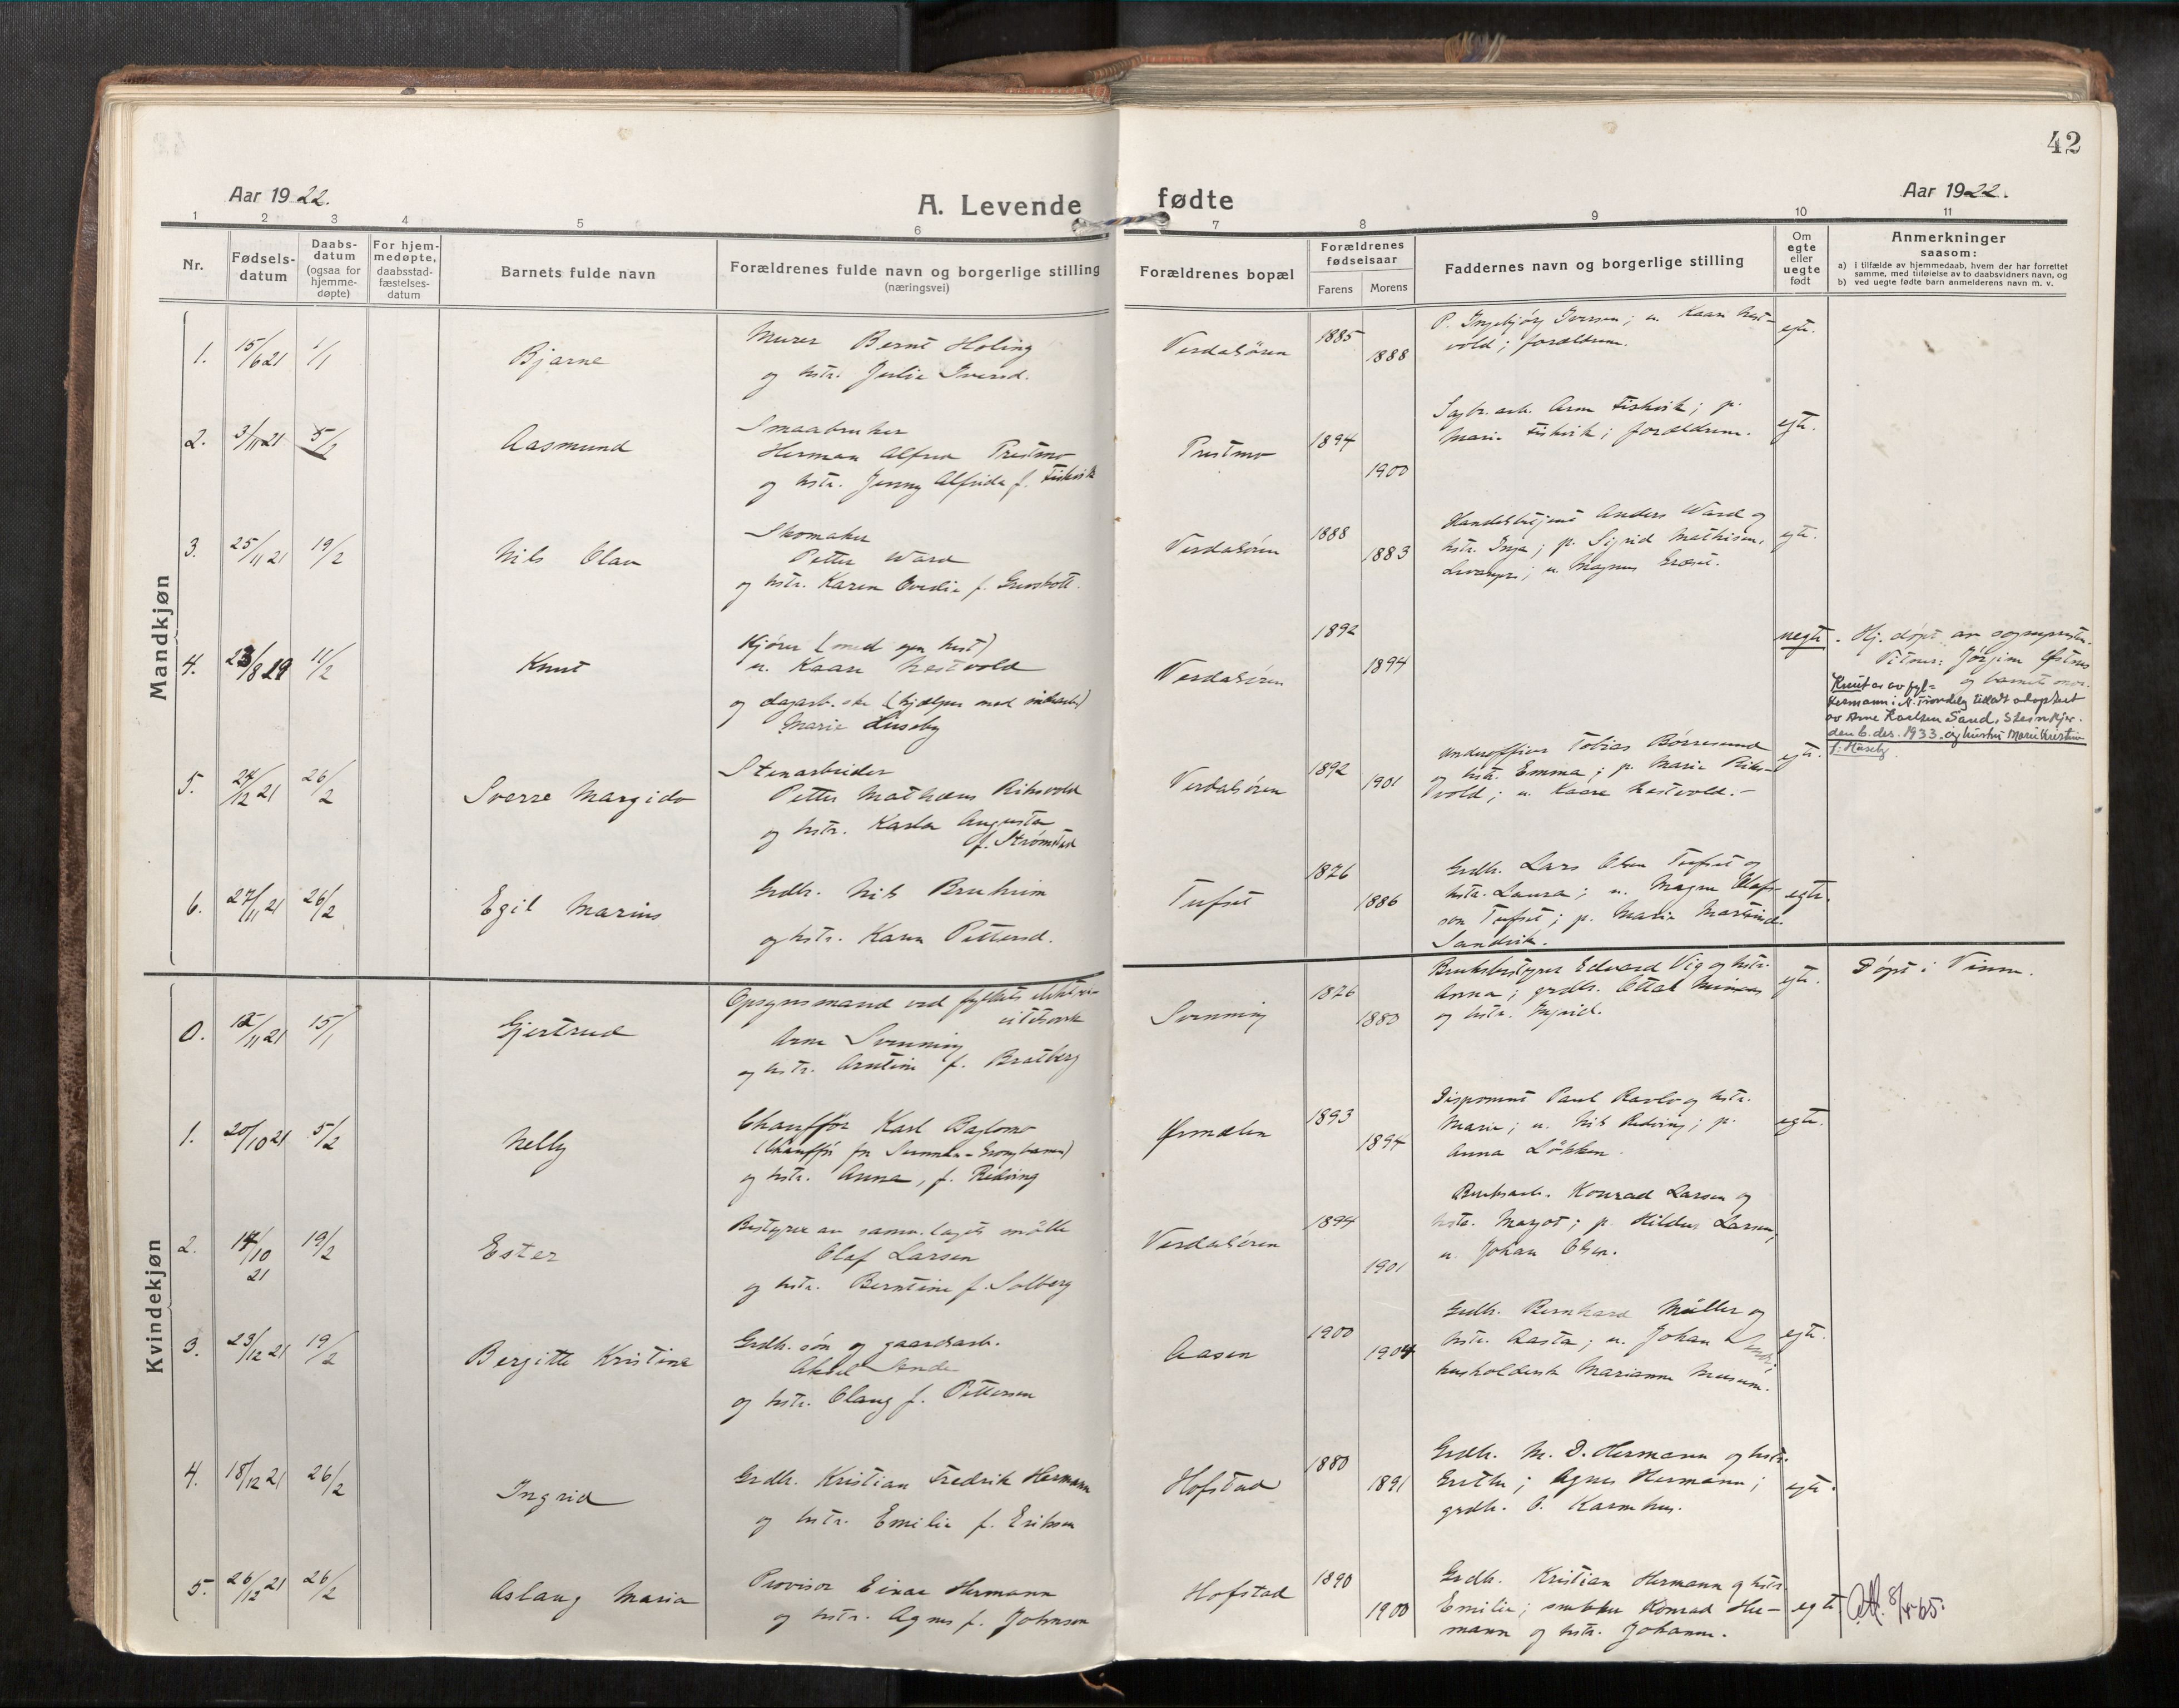 42
Aar 1922.
A. Levende fødte
Aar 1922.
1 2 3 4 5 6 7 8 9 10 11
Nr.
Fødsels-
datum
Daabs-
datum
(ogsaa for
hjemme-
døpte)
For hjem-
medøpte,
daabsstad-
fæstelses-
datum
Barnets fulde navn
Forældrenes fulde navn og borgerlige stilling
(næringsvei)
Forældrenes bopæl
Forældrenes
fødselsaar
Farens Morens
Faddernes navn og borgerlige stilling
Om
egte
eller
uegte
født
Anmerkninger
saasom:
a) i tilfælde av hjemmedaab, hvem der har forrettet
samme, med tilføielse av to daabsvidners navn, og
b) ved uegte fødte barn anmelderens navn m. v.
Mandkjøn
1. 15/6 21 1/1
Bjarne
Murer Bernt Holing
og hstr. Julie Iversd.
Verdalsøren
1885
1888
P. Ingebjørg Iversen; u. Kaare Hest-
vold; forældrene.
egte.
2. 3/11 21 5/2
Aasmund
Smaabruker
Herman Alfred Prestmo
og hstr. Jenny Alfrida f. Fiskvik
Prestmo
1894
1900
Sagbr. arb. Arne Fiskvik; p.
Marie Fiskvik; forældrene.
egte.
3. 25/11 21 19/2
Nils Olav
Skomaker
Petter Ward
og hstr. Karen Ovedie f.
Verdalsøren
1888
1883
Handelsbetjent Anders Ward og
hstr. Inga; p. Sigrid Mathisen,
Levanger; u. Magnus
egte.
4. 23/8 19 11/2
Knut
Kjører (med egen hest)
u. Kaare Hestvold
og dagarb.ske (hjælper med
Marie Huseby
Verdalsøren
1892
1894
uegte.
Hj. døpt av sognepresten.
Vitner: Jørgine
og barnets mor.
Knut er av fyl-
kesmann i N. Trøndelag tillatt adoptert
av Arne Karlsen Sand, Steinkjer.
den 6. des. 1933. og hustru Marie Kristine
f. Huseby
5. 27/12 21 26/2
Sverre Margido
Stenarbeider
Petter Mathæus Riksvold
og hstr. Karla Augusta
f. Strømstad
Verdalsøren
1892
1901
Underofficer Tobias Børresund
og hstr. Emma; p. Marie Riks-
vold; u. Kaare Hestvold.-
egte.
6. 27/11 21 26/2
Egil Marius
Grdbr. Nils Bruheim
og hstr. Karen Pettersd.
Tufset
1876
1886
Grdbr. Lars Olsen Tufset og
hstr. Laura; u. Magne Olafs-
son Tufset; p. Marie Martinsd.
Sandvik.
egte.
Kvindekjøn
0. 12/11 21 15/1
Gjertrud
Opsynsmand ved fylkets elektri-
citetsverk
Arne Svenning
og hstr. Arntine f. Bratberg
Svenning
1876
1880
Bruksbestyrer Edvard Vig og hstr.
Anna; grdbr. Ottar Minsaas
og hstr. Ingrid.
egte.
Døpt i Vinne.
1. 20/10 21 5/2
Nelly
Chauffør Karl Baglomo
(Chauffør for Sunnan-Grongbanen)
og hstr. Anna, f. Redving
Ørmelen
1893
1894
Disponent Paul Ravlo og hstr.
Marie; u. Nils Redving; p.
Anna Løkken.
egte.
2. 14/10 21 19/2
Ester
Bestyrer av samv.lagets mølle
Olaf Larsen
og hstr. Berntine f. Solberg
Verdalsøren
1894
1901
Bruksarb. Konrad Larsen og
hstr. Margot; p. Hildur Larsen,
u. Johan Olsen.
3. 23/12 21 19/2
Bergitte Kristine
Grdbr. søn og gaardsarb.
Aksel Lunde
og hstr. Olaug f. Pettersen
Aasen
1900
1904
Grdbr. Bernhard Müller og
hstr. Aasta; u. Johan
husholderske Marianne Musum.
egte.
4. 18/12 21 26/2
Ingrid
Grdbr. Kristian Fredrik Hermann
og hstr. Emilie f. Eriksen
Hofstad
1880
1891
Grdbr. M. D. Hermann og hstr.
Grethe; Agnes Hermann;
grdbr. O. Karmhus.
egte.
5. 26/12 21 26/2
Aslaug Marie
Provisor Einar Hermann
og hstr. Agnes f. Johnsen
Hofstad
1890
1900
Grdbr. Kristian Hermann og hstr.
Emilie; snekker Konrad Her-
mann og hstr. Johanne.
egte
Att. 8/4-65.